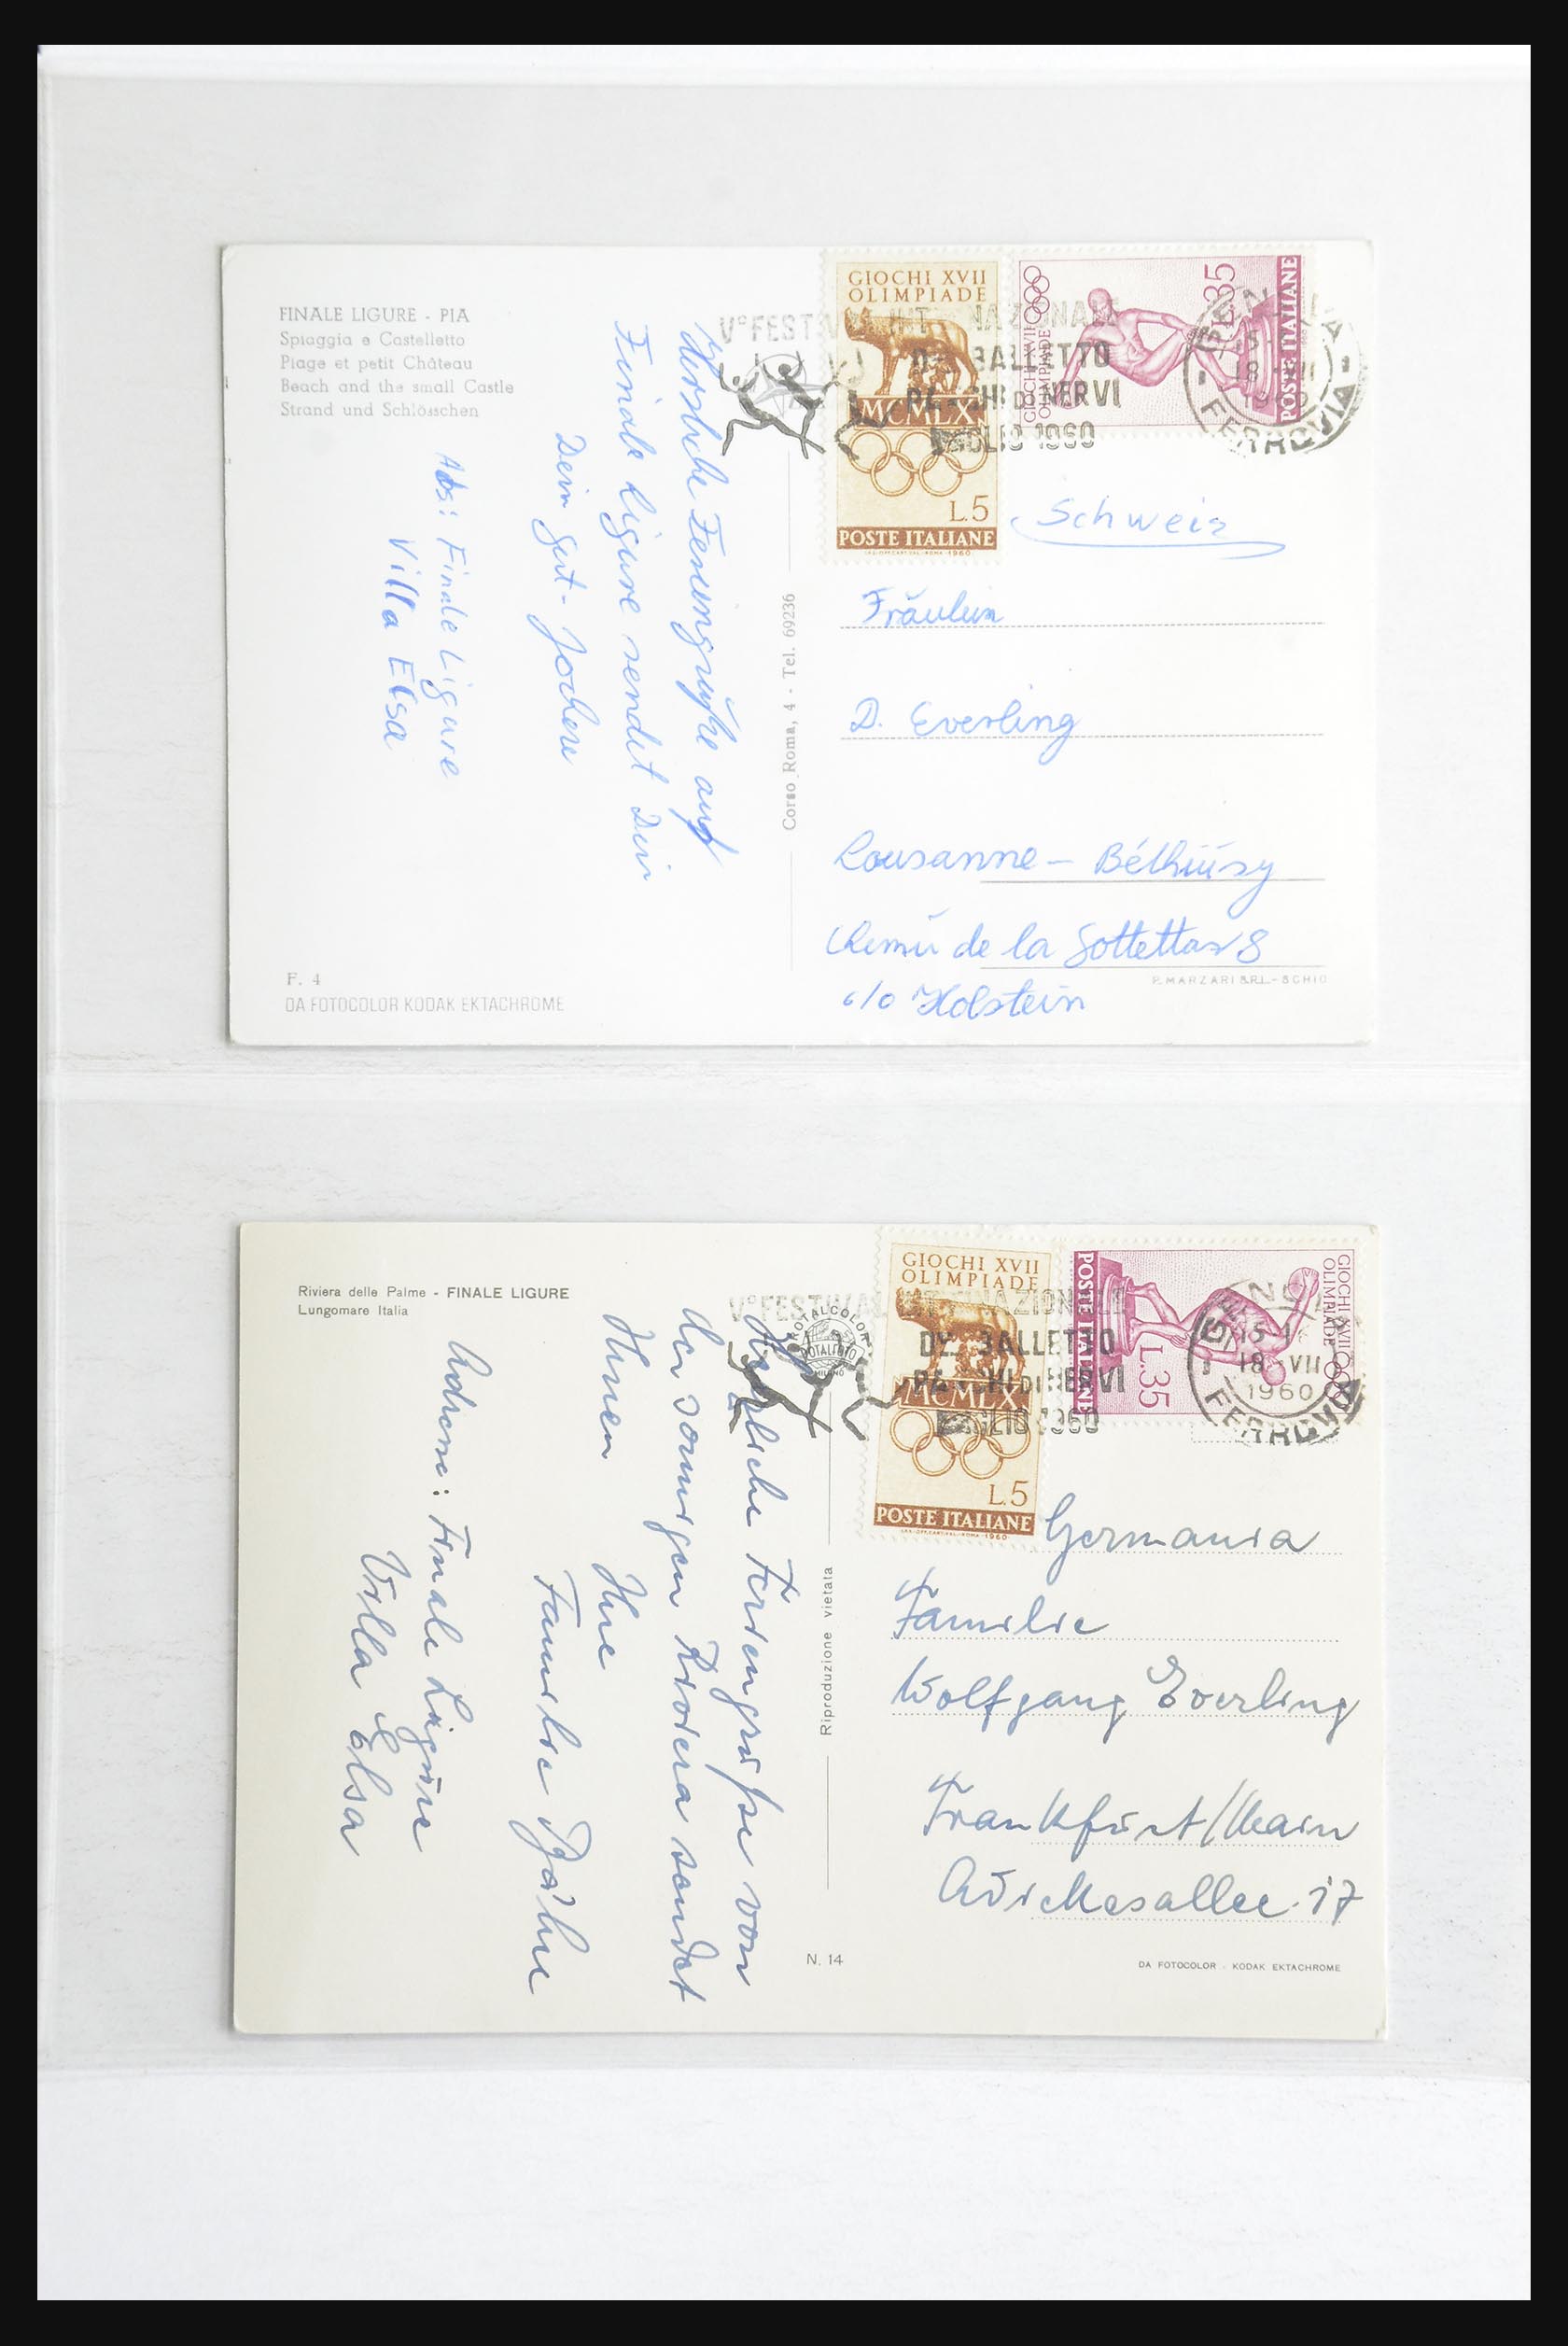 FINALE LIGURE - PIA
Spiaggia e Castelletto
Plage et petit Château
Beach and the small Castle
Strand und Schlösschen
GIOCHI XVII
OLIMPIADE
MCMLX
L.5
POSTE ITALIANE
GIOCHI XVII
OLIMPIADE
L.35
POSTE ITALIANE
V° FESTIVAL INTERNAZIONALE
DEL BALLETTO
PARCHI DI NERVI
LUGLIO 1960
GENOVA
18 VII
1960
FERROVIA
Herzliche Feriengrüße aus
Finale Ligure sendet Dir
Dein
Jochen
Abs: Finale Ligure
Villa Elsa
Corso Roma, 4 - Tel. 69236
Schweiz
Fräulein
D. Everling
Lousanne - Béthüsy
de la
c/o Holstein
F. 4
DA FOTOCOLOR KODAK EKTACHROME
P. MARZARI S.R.L. - SCHIO
Riviera delle Palme - FINALE LIGURE
Lungomare Italia
ROTALCOLOR
ROTALFOTO
MILANO
GIOCHI XVII
OLIMPIADE
MCMLX
L.5
POSTE ITALIANE
GIOCHI XVII
OLIMPIADE
L.35
POSTE ITALIANE
V° FESTIVAL INTERNAZIONALE
DEL BALLETTO
PARCHI DI NERVI
LUGLIO 1960
GENOVA
18 VII
1960
FERROVIA
Herzliche Feriengrüße von
der sonnigen Riviera sendet
Ihnen
Ihre
Familie
Adresse: Finale Ligure
Villa Elsa
Riproduzione vietata
Germania
Familie
Wolfgang Everling
Frankfurt/Main
Adickesallee 17
N. 14
DA FOTOCOLOR - KODAK EKTACHROME